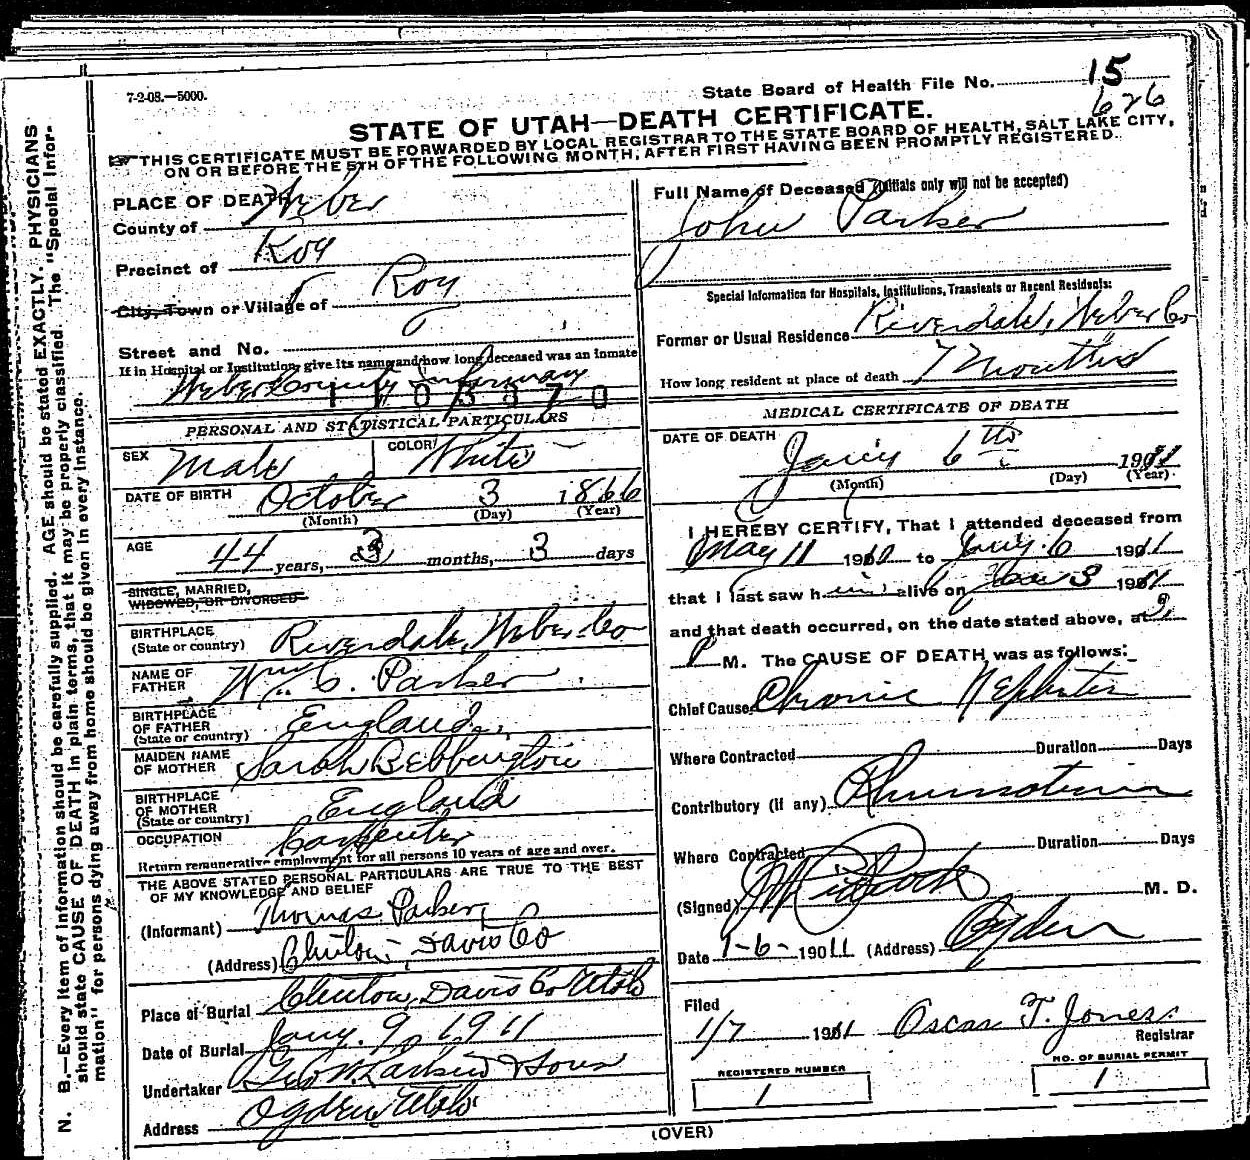 7-2-08.—5000.
State Board of Health File No. 15
626
STATE OF UTAH—DEATH CERTIFICATE.
THIS CERTIFICATE MUST BE FORWARDED BY LOCAL REGISTRAR TO THE STATE BOARD OF HEALTH, SALT LAKE CITY,
ON OR BEFORE THE 5TH OF THE FOLLOWING MONTH, AFTER FIRST HAVING BEEN PROMPTLY REGISTERED.
N. B.—Every item of information should be carefully supplied. AGE should be stated EXACTLY. PHYSICIANS
should state CAUSE OF DEATH in plain terms, that it may be properly classified. The "Special Infor-
mation" for persons dying away from home should be given in every instance.
PLACE OF DEATH
County of Weber
Precinct of Roy
City, Town or Village of Roy
Street and No.
If in Hospital or Institution, give its name and how long deceased was an inmate
Weber County Infirmary
PERSONAL AND STATISTICAL PARTICULARS
SEX Male COLOR White
DATE OF BIRTH October 3 1866
(Month) (Day) (Year)
AGE 44 years, 3 months, 3 days
SINGLE, MARRIED,
WIDOWED, OR DIVORCED
BIRTHPLACE
(State or country) Riverdale, Weber Co
NAME OF
FATHER Wm C. Parker
BIRTHPLACE
OF FATHER
(State or country) England
MAIDEN NAME
OF MOTHER Sarah Bebbington
BIRTHPLACE
OF MOTHER
(State or country) England
OCCUPATION Carpenter
Return remunerative employment for all persons 10 years of age and over.
THE ABOVE STATED PERSONAL PARTICULARS ARE TRUE TO THE BEST
OF MY KNOWLEDGE AND BELIEF
(Informant) Thomas Parker
(Address) Clinton, Davis Co
Place of Burial Clinton, Davis Co Utah
Date of Burial Jany. 9, 1911
Undertaker Geo W. Larkin & Sons
Address Ogden Utah
Full Name of Deceased (Initials only will not be accepted)
John Parker
Special Information for Hospitals, Institutions, Transients or Recent Residents:
Former or Usual Residence Riverdale, Weber Co
How long resident at place of death 7 Months
MEDICAL CERTIFICATE OF DEATH
DATE OF DEATH
Jany 6th 1911
(Month) (Day) (Year)
I HEREBY CERTIFY, That I attended deceased from
May 11 1910 to Jany. 6 1911
that I last saw him alive on Jan 3 1911
and that death occurred, on the date stated above, at 2
P M. The CAUSE OF DEATH was as follows:
Chief Cause Chronic Nephritis
Where Contracted Duration Days
Contributory (if any) Rhumatism
Where Contracted Duration Days
(Signed) M. D.
Date 1-6- 1911 (Address) Ogden
Filed
1/7 1911 Oscar T. Jones
Registrar
REGISTERED NUMBER
1
NO. OF BURIAL PERMIT
1
(OVER)